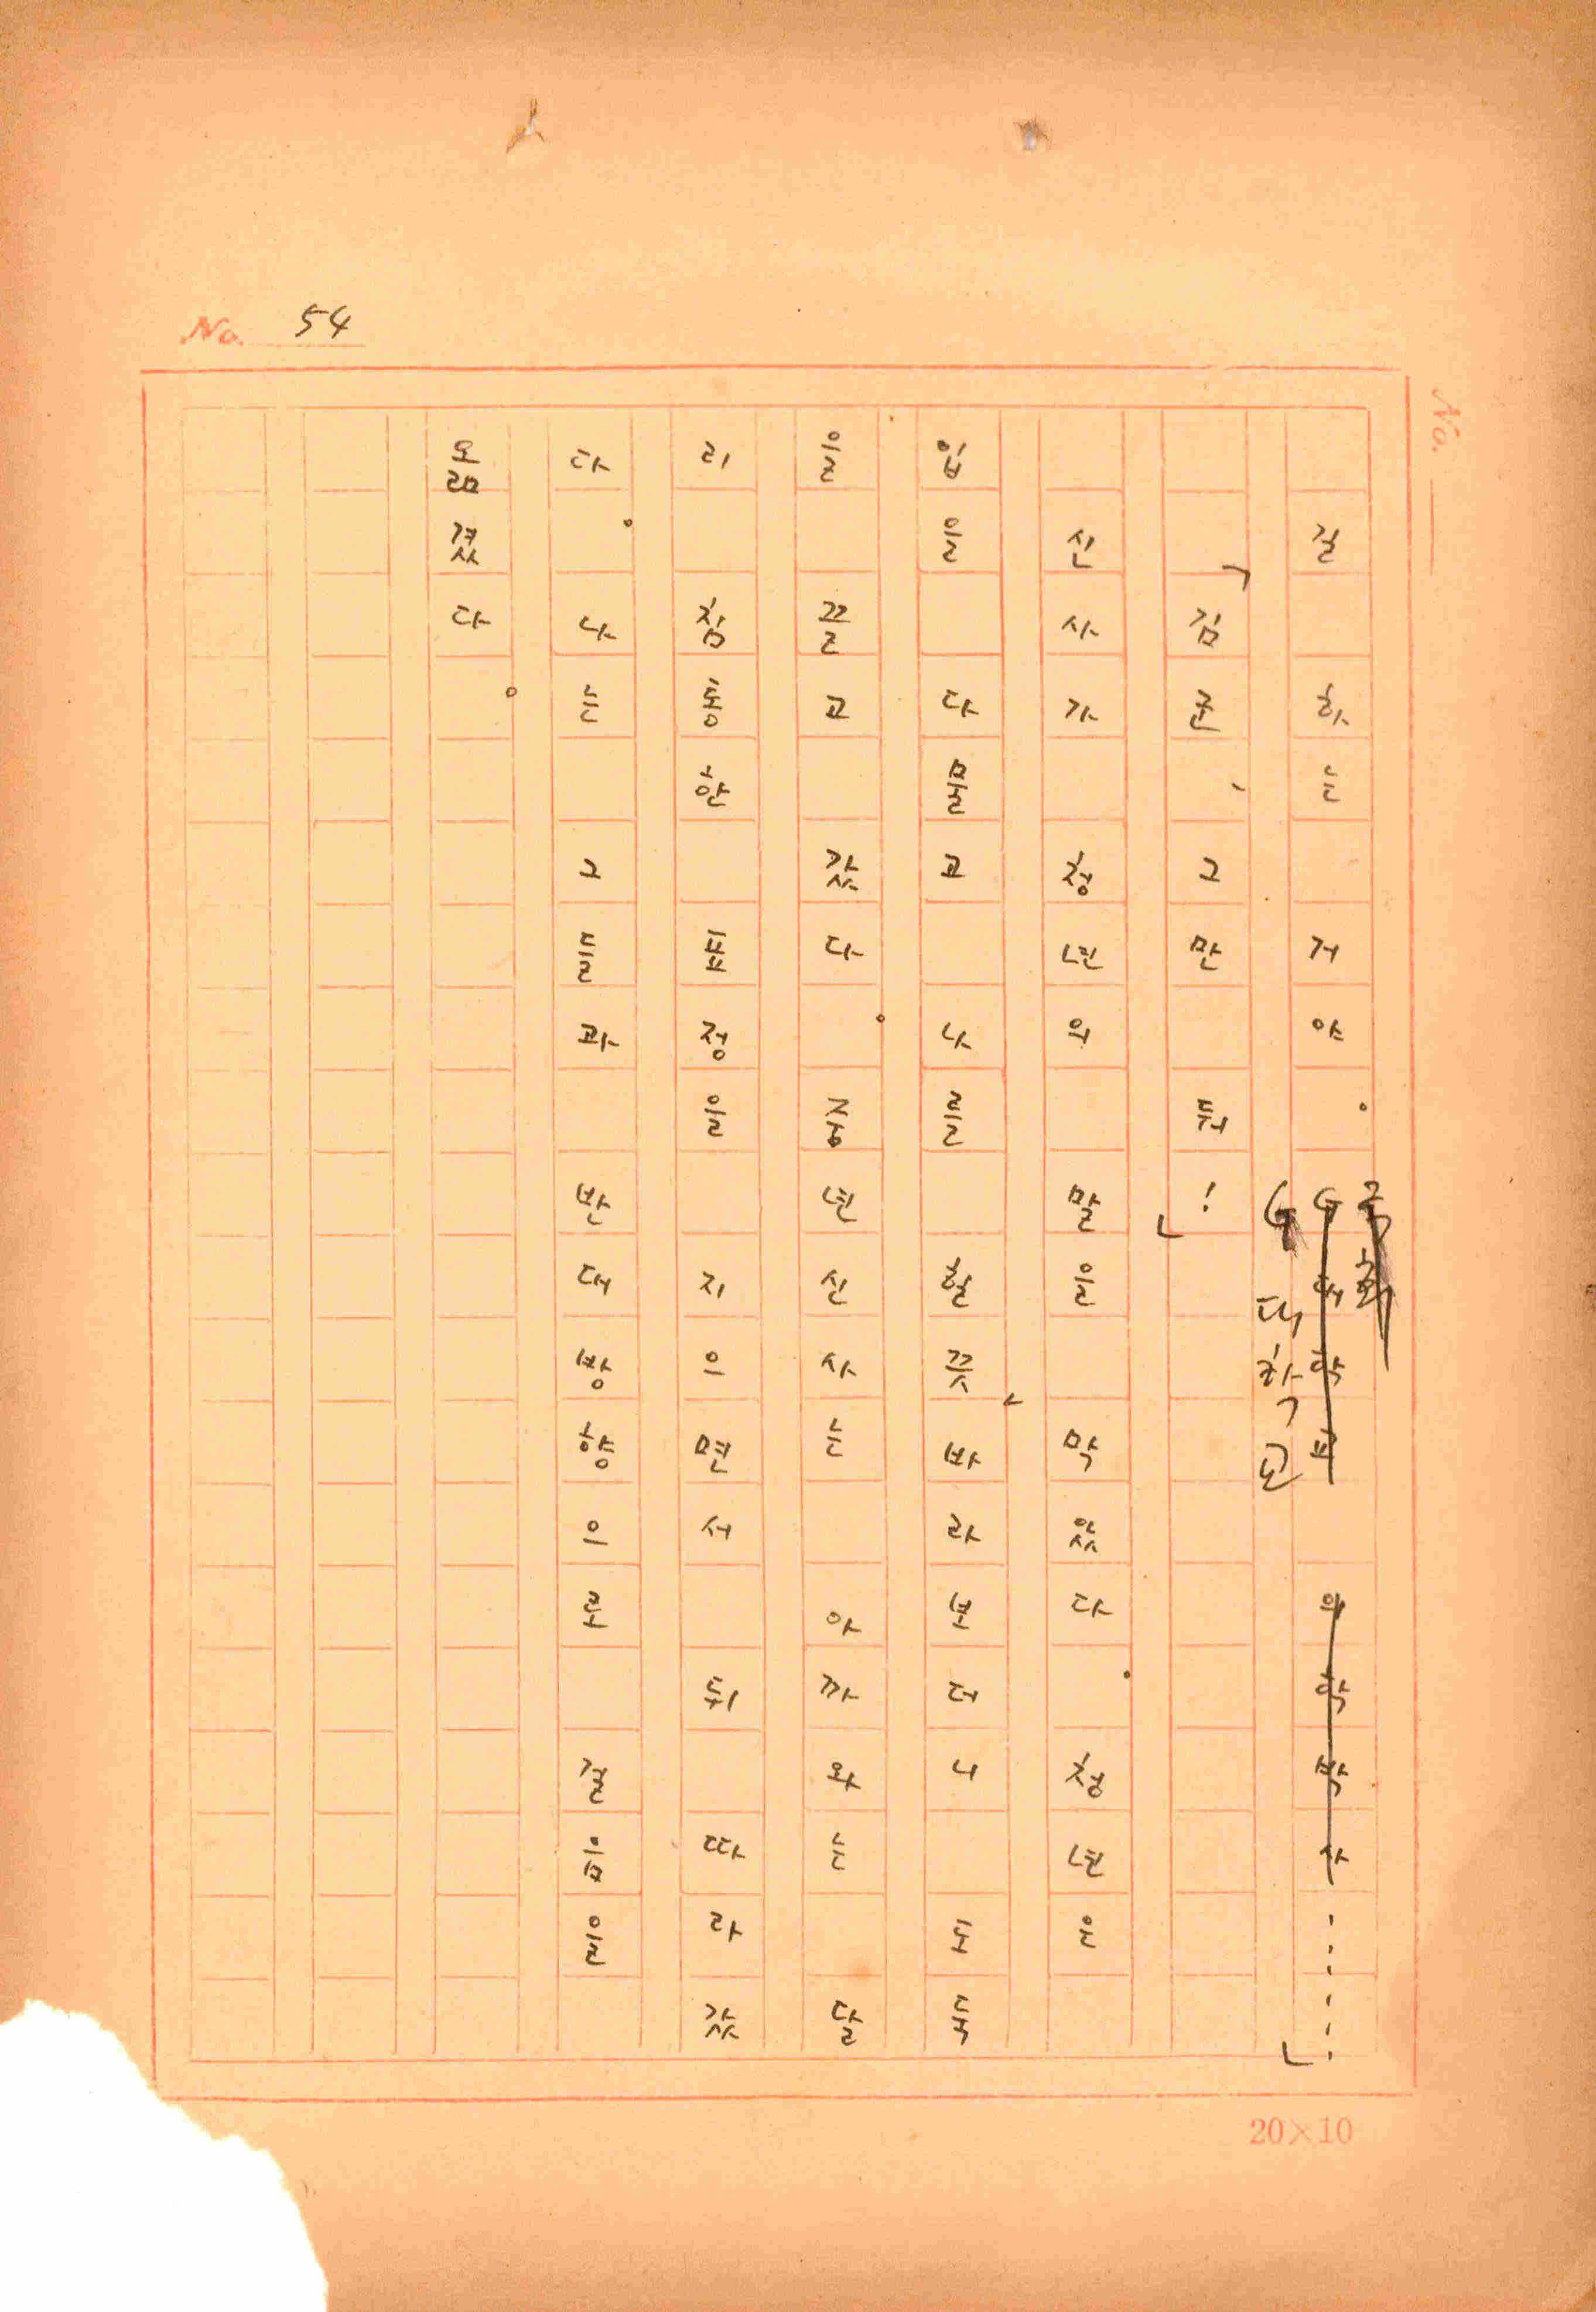 No. 54
No.
잘 하는 거야. G대학교 ......」
「김군, 그만 둬!」
신사가 청년의 말을 막았다. 청년은
입을 다물고 나를 힐끗, 바라보더니 도둑
을 끌고 갔다. 중년신사는 아까와는 달
리 침통한 표정을 지으면서 뒤 따라갔
다. 나는 그들과 반대방향으로 걸음을
옮겼다.
20×10